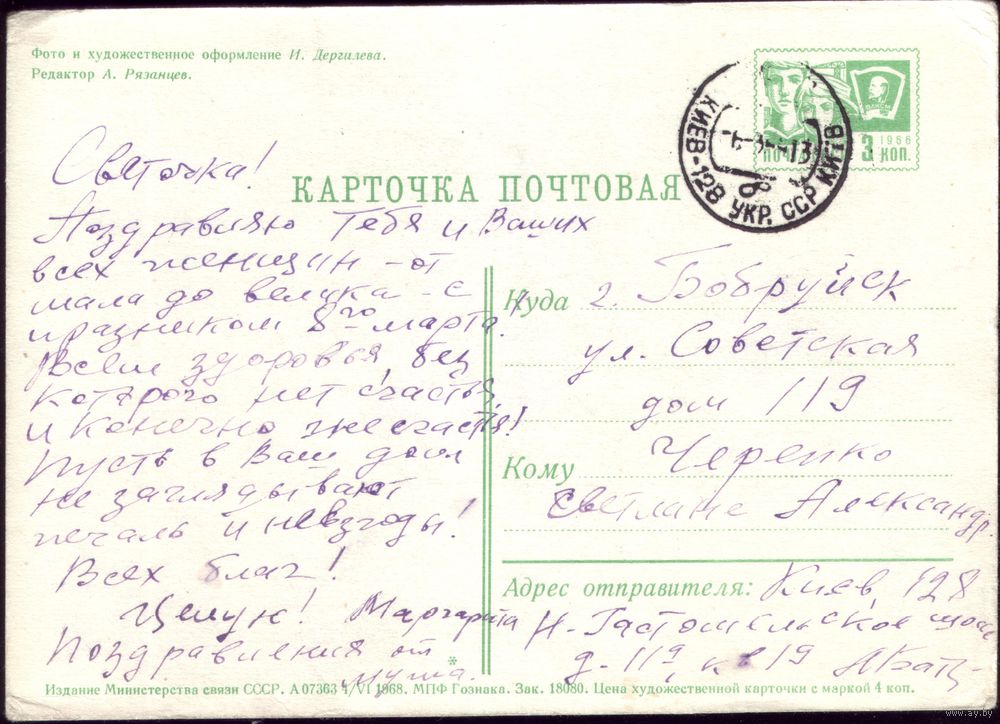 Фото и художественное оформление И. Дергилева.
Редактор А. Рязанцев.
1966
ВЛКСМ
ПОЧТА СССР 3 КОП.
КИЕВ-128 УКР. ССР КИЇВ
КАРТОЧКА ПОЧТОВАЯ
Светочка!
Поздравляю Тебя и Ваших
всех женщин - от
мала до велика - с
празником 8го марта!
Всем здоровья, без
которого нет счастья,
и конечно же счастья!
Пусть в Ваш дом
не заглядывают
печаль и невзгоды!
Всех благ!
Целую! Маргарита
Поздравления от
мужа.
Куда г. Бобруйск
ул. Советская
дом 119
Кому Черепко
Светлане Александр.
Адрес отправителя: Киев 128
Н-Гостомельское шоссе
д-119, кв 19
*
Издание Министерства связи СССР. А 07363 4/VI 1968. МПФ Гознака. Зак. 18080. Цена художественной карточки с маркой 4 коп.
www.ay.by